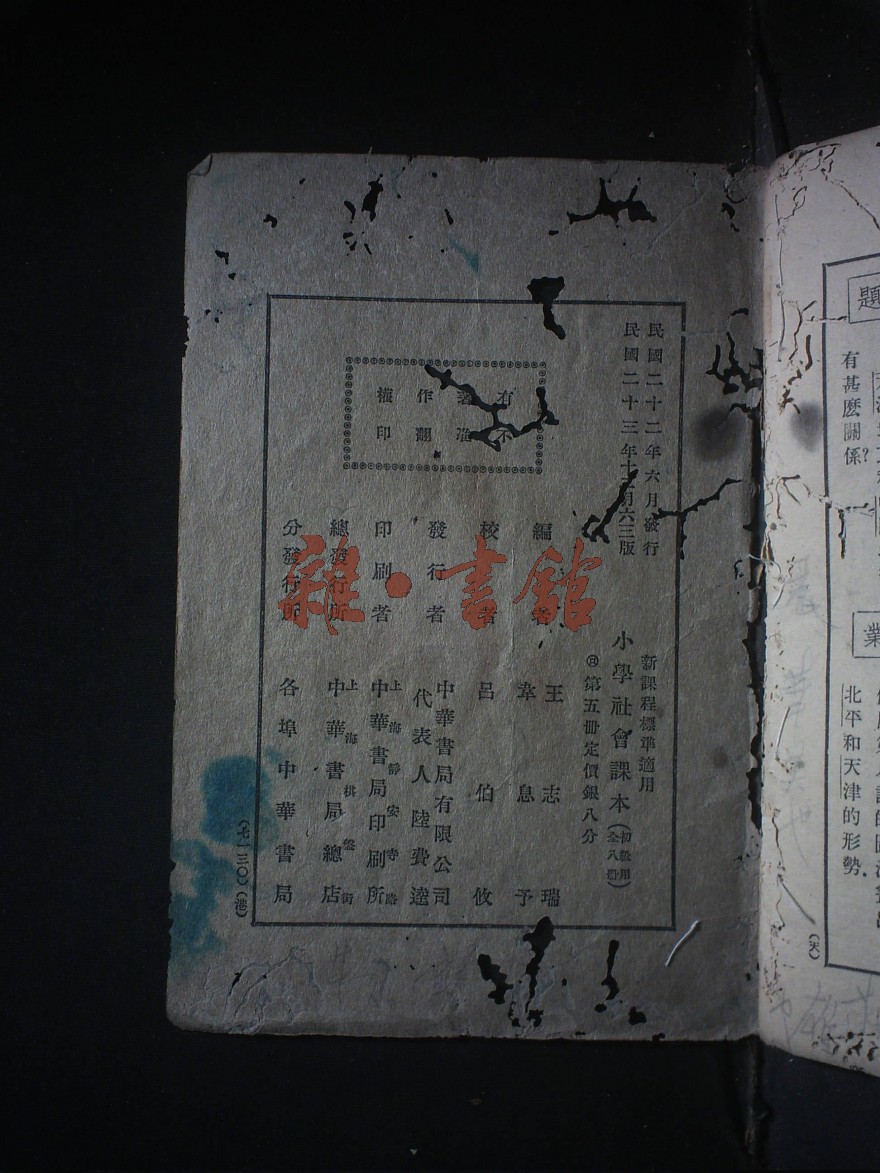 題
有甚麽關係?
業
北平和天津的形勢.
(天)
民國二十二年六月發行
民國二十三年十二月六三版
新課程標準適用
小學社會課本(初級用 全八冊)
第五冊定價銀八分
有著作權
不准翻印
編者
王志瑞
韋息予
校者
呂伯攸
發行者
中華書局有限公司
代表人陸費逵
印刷者
上海靜安寺路
中華書局印刷所
總發行所
上海棋盤街
中華書局總店
分發行所
各埠中華書局
(七一三〇)(港)
雜·書館